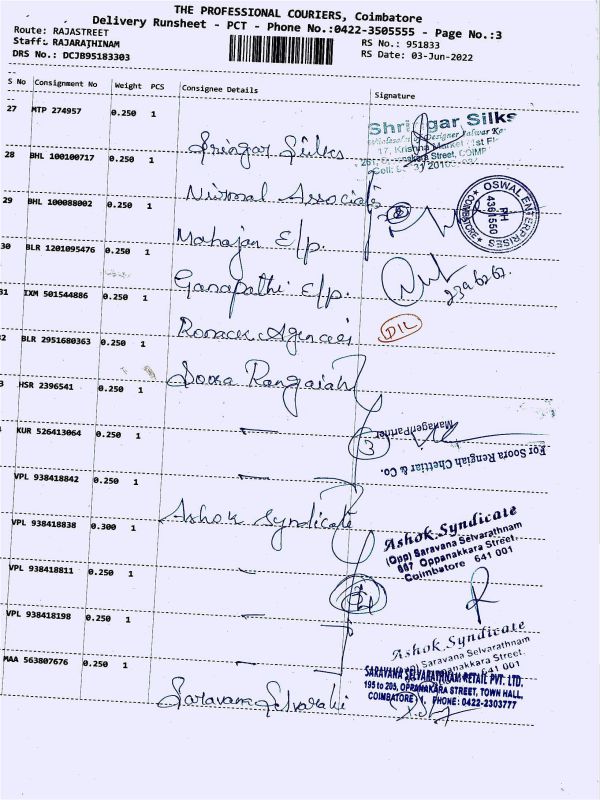 THE PROFESSIONAL COURIERS, Coimbatore
Delivery Runsheet - PCT - Phone No.:0422-3505555 - Page No.:3
Route: RAJASTREET
Staff: RAJARAJHINAM
DRS No.: DCJB95183303
RS No.: 951833
RS Date: 03-Jun-2022
S No Consignment No Weight PCS Consignee Details Signature
27 MTP 274957 0.250 1 Sringar Silks
28 BHL 100100717 0.250 1 Nirmal Associates
29 BHL 100088002 0.250 1 Mahajan E/p.
30 BLR 1201095476 0.250 1 Ganapathi E/p.
31 IXM 501544886 0.250 1 Ronack Agencies
2 BLR 2951680363 0.250 1 Soora Rangaiah
3 HSR 2396541 0.250 1
KUR 526413064 0.250 1
VPL 938418842 0.250 1 Ashok Syndicate
VPL 938418838 0.300 1
VPL 938418811 0.250 1
VPL 938418198 0.250 1
MAA 563807676 0.250 1 Saravana Selvarathi
Silks
17, Krishna Market
OSWAL ENTERPRISES
PH
4361550
DIL
3
Manager/Partner
For Soora Rengiah Chettiar & Co.
Ashok Syndicate
(Opp) Saravana Selvarathnam
667 Oppanakkara Street,
Coimbatore 641 001
Ashok Syndicate
Saravana Selvarathnam
Oppanakkara Street,
641 001
SARAVANA SELVARATHNAM RETAIL PVT. LTD.
195 to 205, OPPANAKARA STREET, TOWN HALL,
COIMBATORE 1. PHONE: 0422-2303777